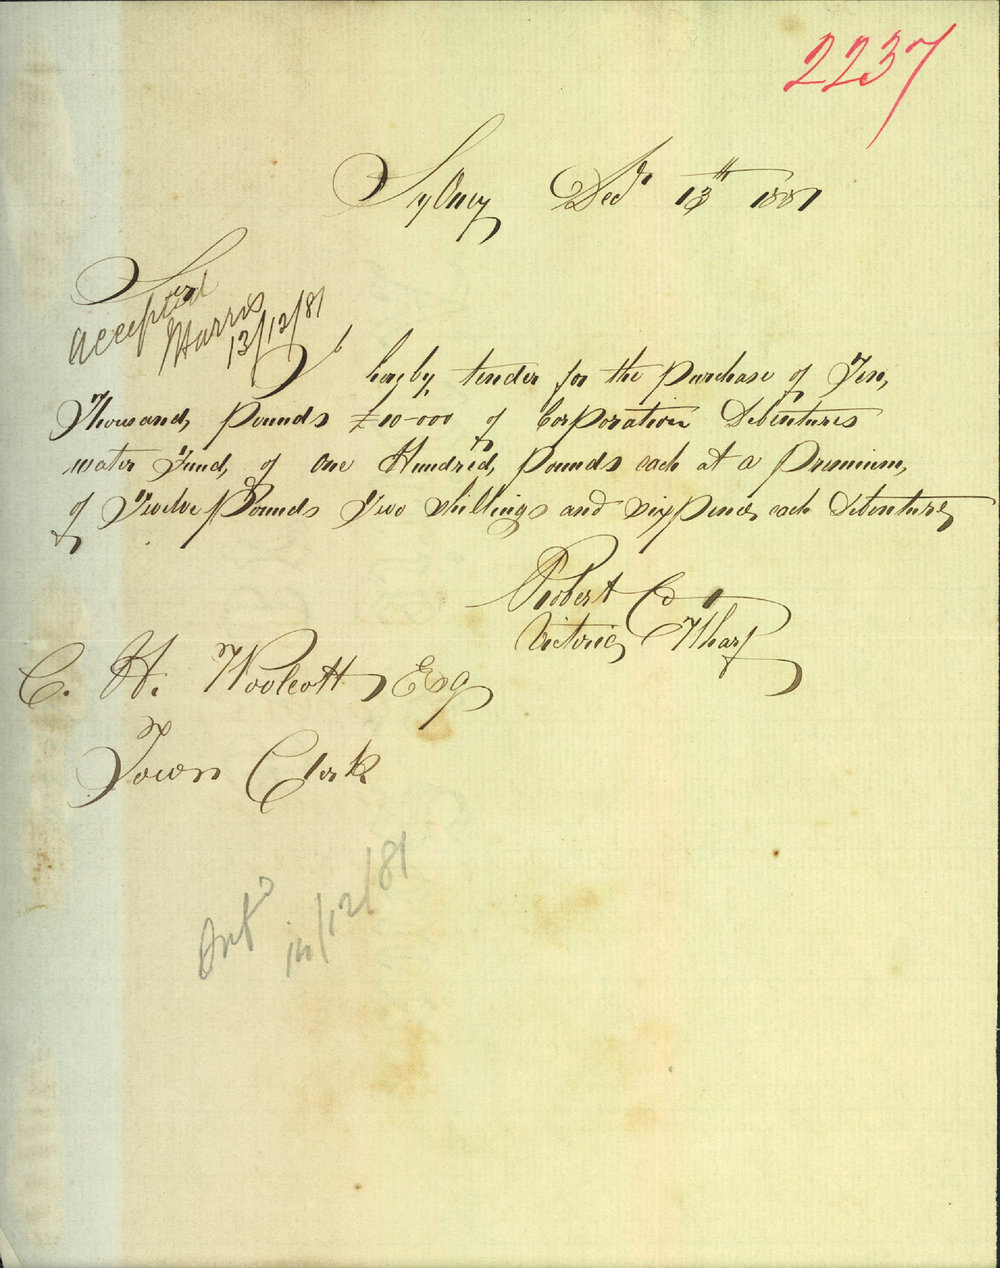 2237
Sydney Decr 13th 1881
Sir
Accepted
Harris
13/12/81
I hereby tender for the purchase of Ten
Thousand pounds £10-000 of Corporation Debentures
water Fund, of One Hundred, pounds each at a Premium,
of Twelve Pounds Two shillings and sixpence each debenture
Robert Co
Victoria Wharf
C. H. Woolcott Esq
Town Clerk
14/12/81